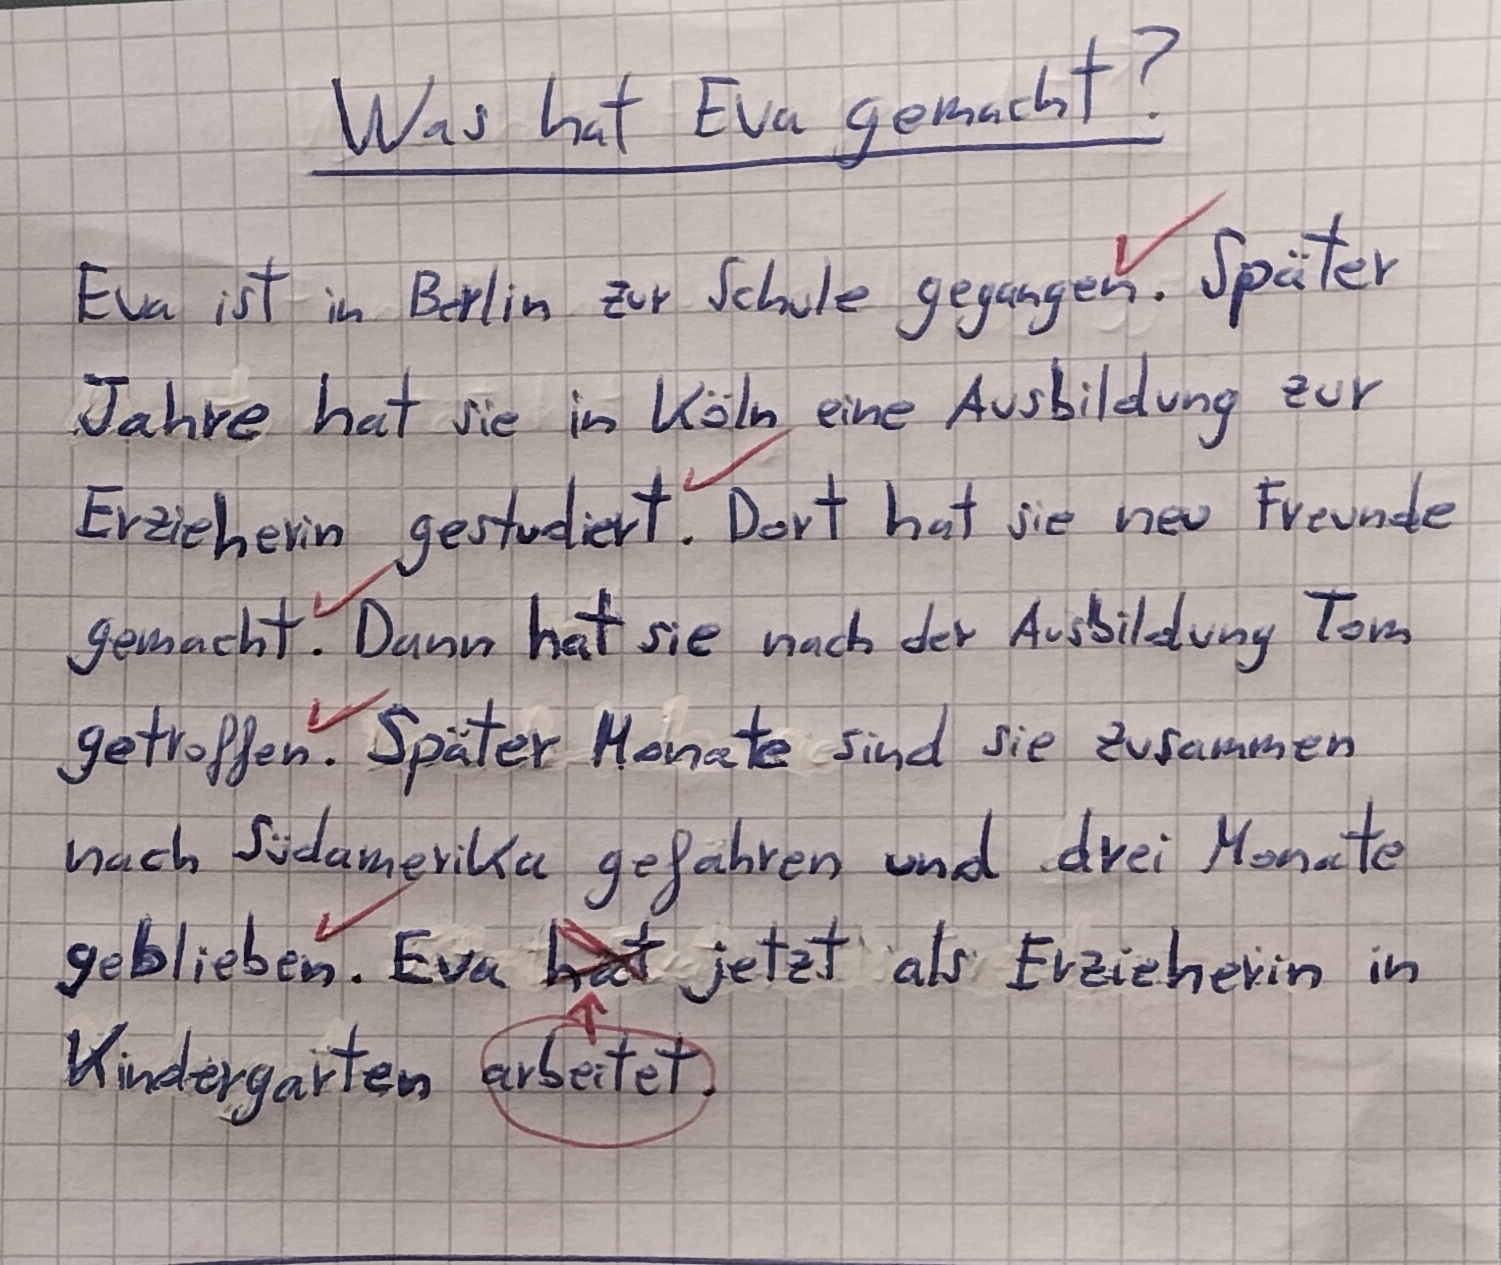 Was hat Eva gemacht?
Eva ist in Berlin zur Schule gegangen. Später
Jahre hat sie in Köln eine Ausbildung zur
Erzieherin gestudiert. Dort hat sie neu Freunde
gemacht. Dann hat sie nach der Ausbildung Tom
getroffen. Später Monate sind sie zusammen
nach Südamerika gefahren und drei Monate
geblieben. Eva hat jetzt als Erzieherin in
Kindergarten arbeitet.